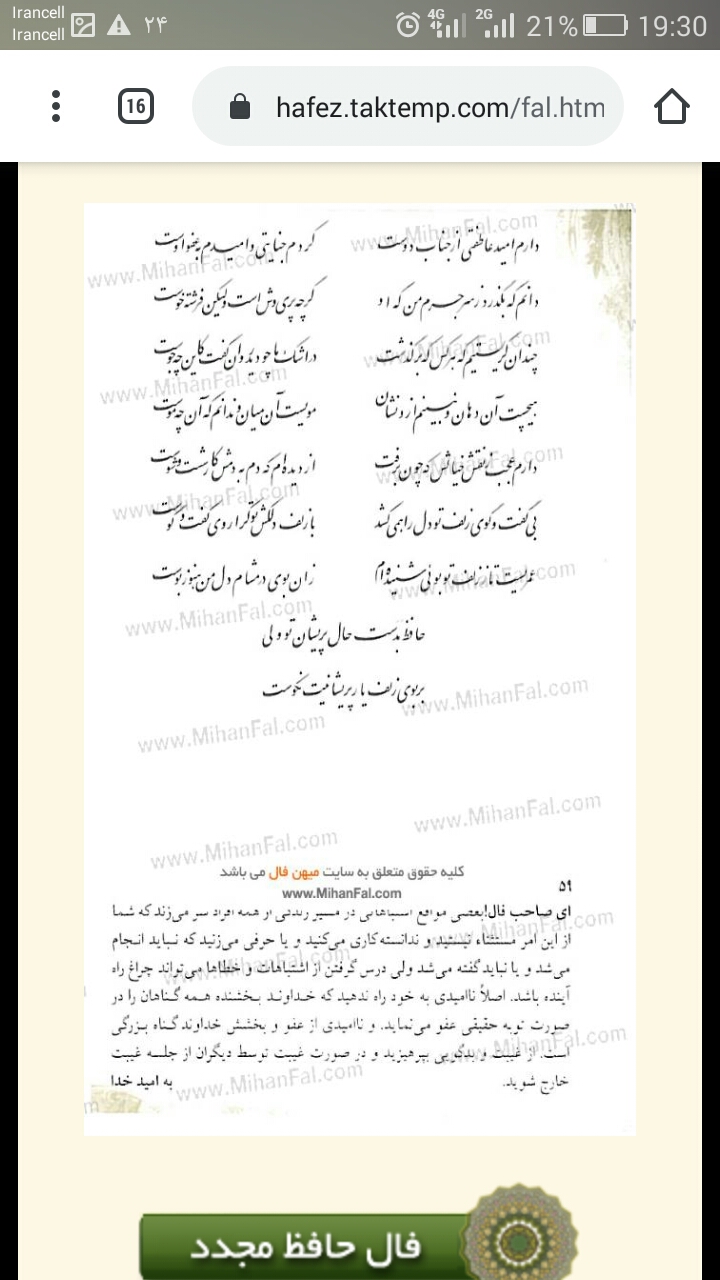 Irancell
Irancell
۲۴
4G
2G
21%
19:30
16
hafez.taktemp.com/fal.htm
دارم امید عاطفتی از جناب دوست
کردم جنایتی و امیدم به عفو اوست
دانم که بگذرد ز سر جرم من که او
گرچه پری وش است ولیکن فرشته خوست
چندان گریستیم که هر کس که برگذشت
در اشک ما چو دید روان گفت کاین چه جوست
هیچست آن دهان و نبینم از و نشان
مویست آن میان و ندانم که آن چه موست
دارم عجب ز نقش خیالش که چون نرفت
از دیده‌ام که دم به دمش کار شست و شوست
بی گفت و گوی زلف تو دل را همی کشد
با زلف دلکش تو کرا روی گفت و گوست
عمریست تا ز زلف تو بویی شنیده‌ام
زان بوی در مشام دل من هنوز بوست
حافظ بدست حال پریشان تو ولی
بر بوی زلف یار پریشانیت نکوست
www.MihanFal.com
کلیه حقوق متعلق به سایت میهن فال می باشد
www.MihanFal.com
۵۹
ای صاحب فال! بعضی مواقع اشتباهاتی در مسیر زندگی از همه افراد سر می‌زند که شما
از این امر مستثناء نیستید و ندانسته کاری می‌کنید و یا حرفی می‌زنید که نباید انجام
می‌شد و یا نباید گفته می‌شد ولی درس گرفتن از اشتباهات و خطاها می‌تواند چراغ راه
آینده باشد. اصلاً ناامیدی به خود راه ندهید که خداوند بخشنده همه گناهان را در
صورت توبه حقیقی عفو می‌نماید. و ناامیدی از عفو و بخشش خداوند گناه بزرگی
است. از غیبت و بدگویی بپرهیزید و در صورت غیبت توسط دیگران از جلسه غیبت
خارج شوید.
به امید خدا
فال حافظ مجدد